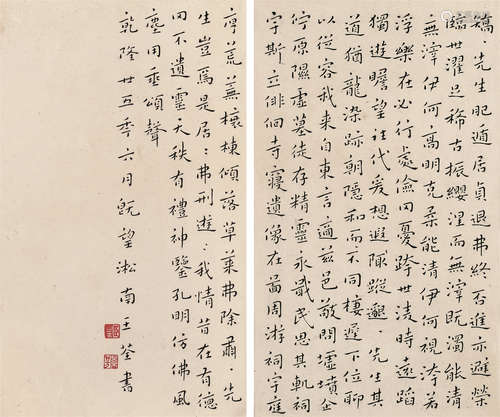 矯〻先生肥遁居貞退弗終否亦避榮
臨世濯足稀古振纓涅而無滓既濁能清
無滓伊何高明克柔能清伊何視洿若
浮樂在必行處儉罔憂跨世淩時遠蹈
獨遊瞻望往代爰想遐蹤邈〻先生其
道猶龍染跡朝隱和而不同棲遲下位聊
以從容我來自東言適茲邑敬問墟墳企
佇原隰虛墓徒存精靈永戢民思其軌祠
宇斯立徘徊寺寢遺像在啚周游祠宇庭
序荒蕪榱棟傾落草萊弗除肅〻先
生豈焉是居〻弗刑遊〻我情昔在有德
罔不遺靈天秩有禮神鑒孔明仿佛風
塵用垂頌聲
乾隆卅五年六月既望淞南王荃書